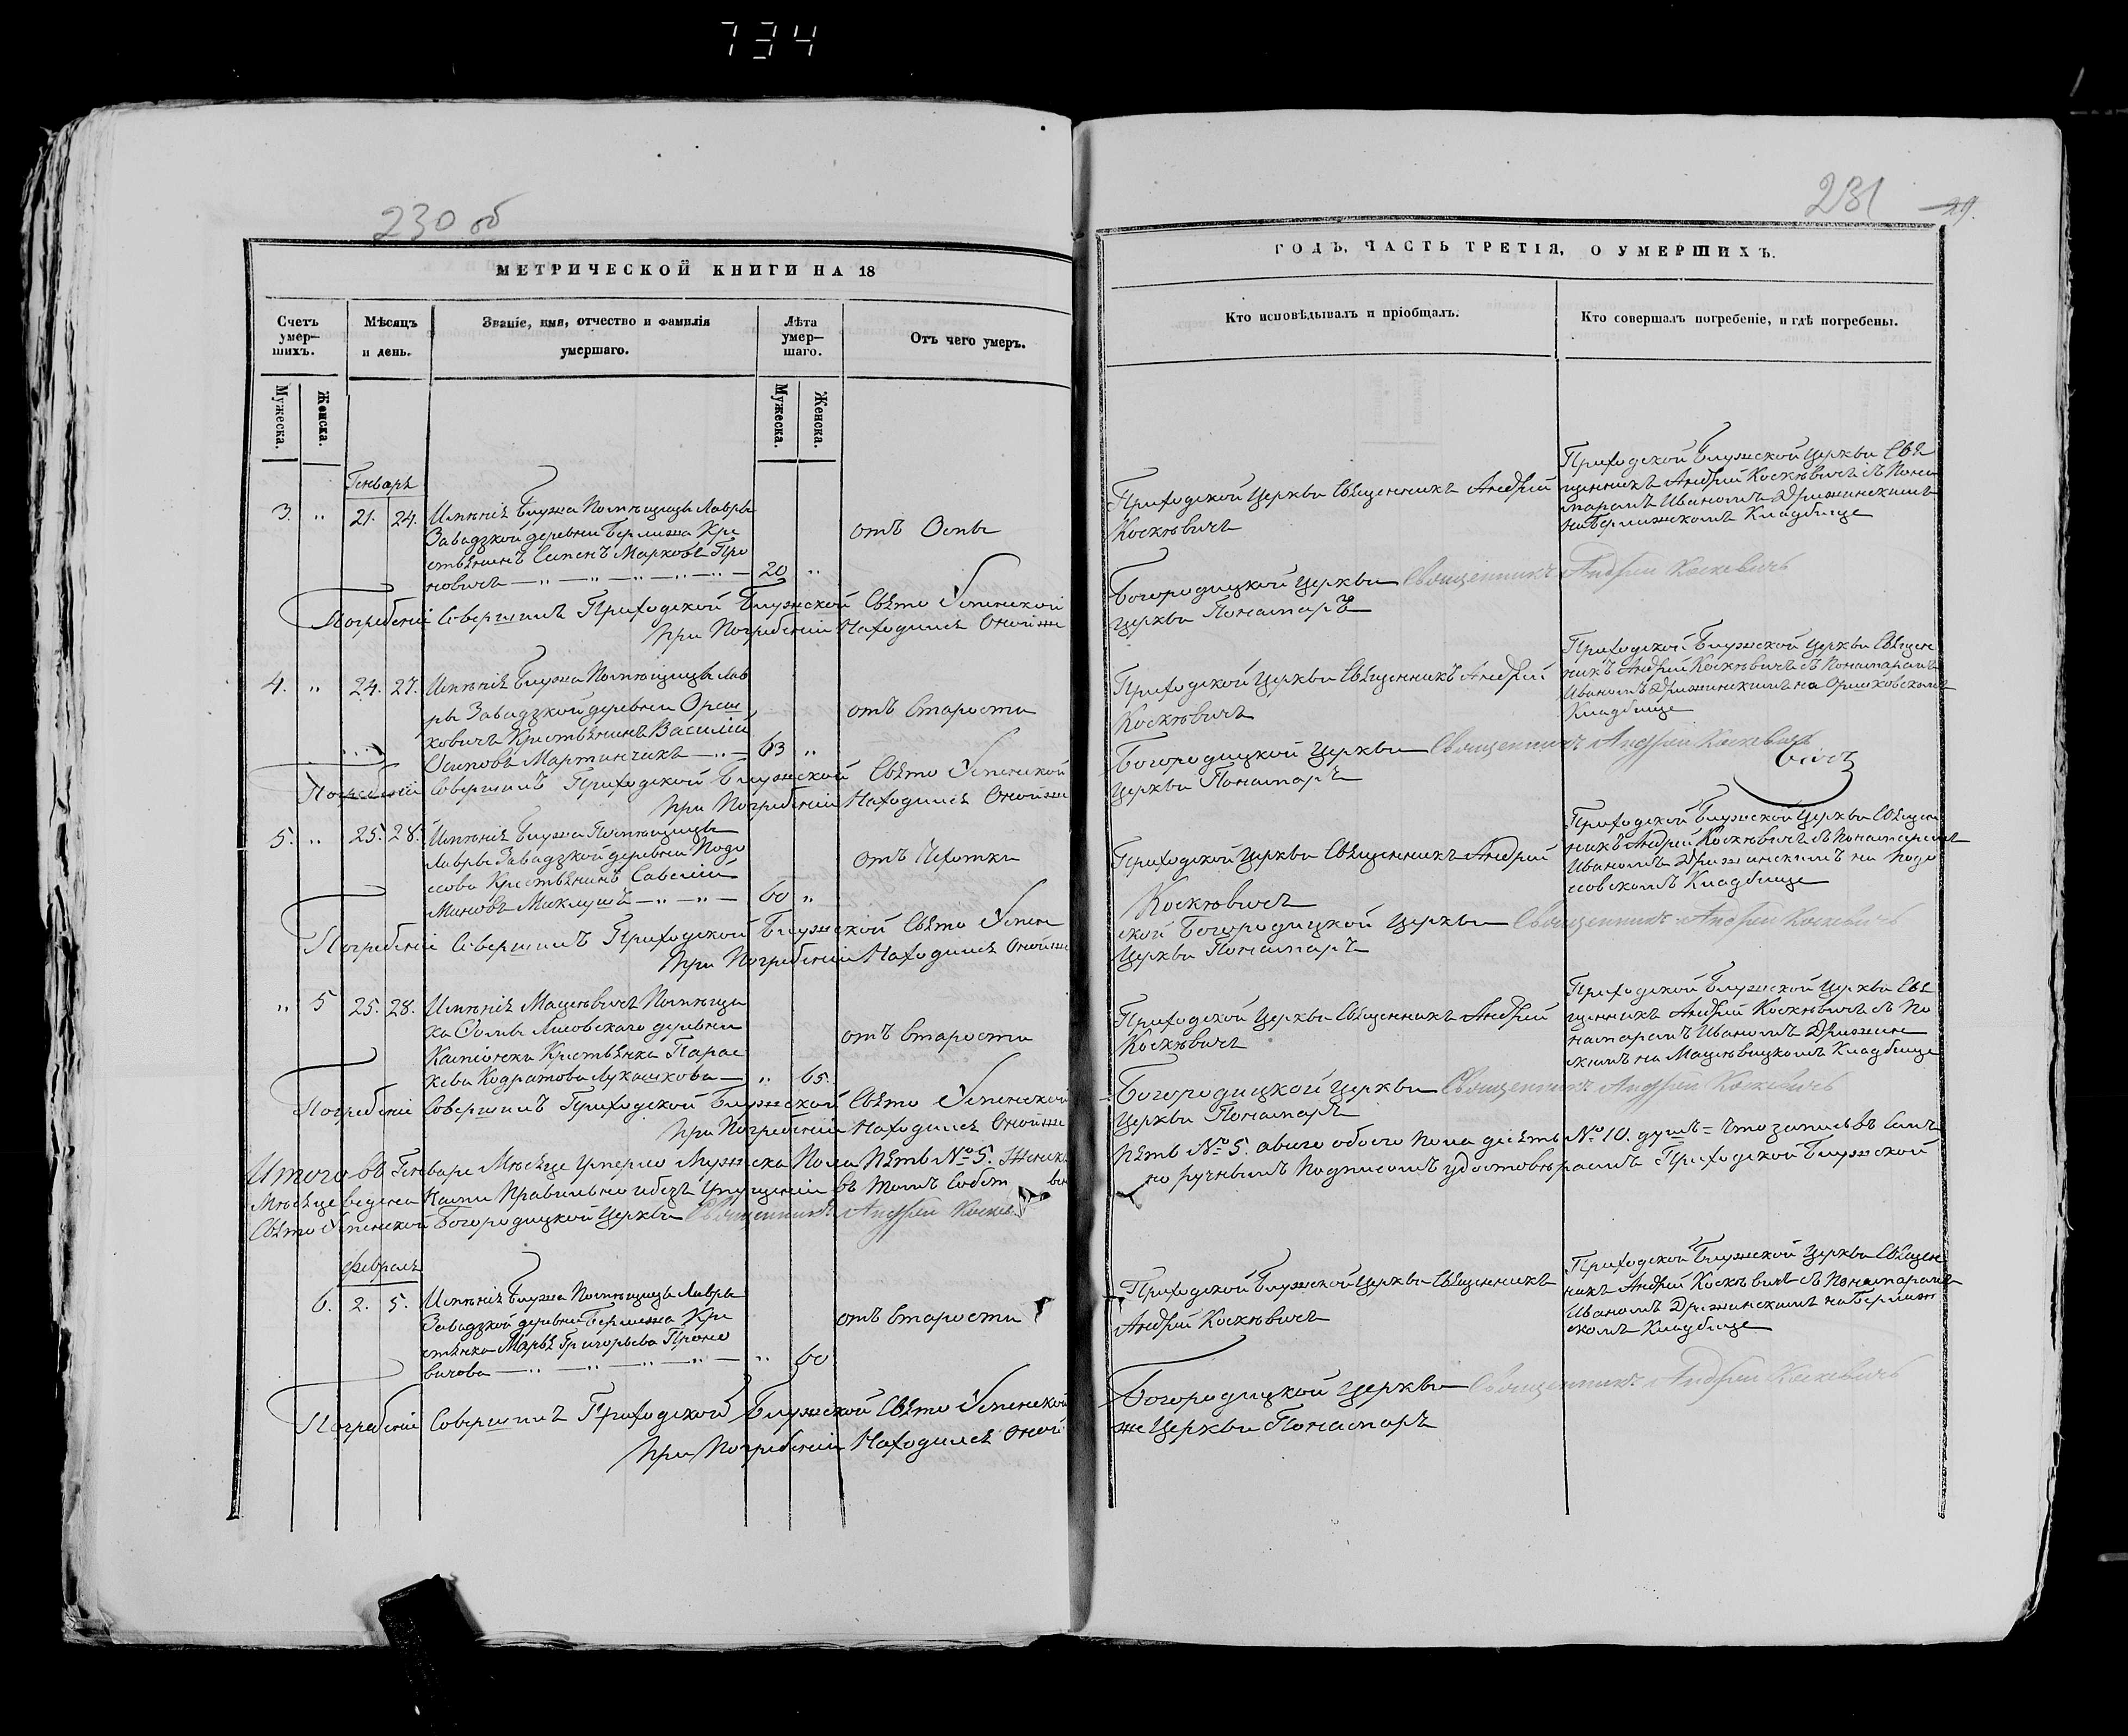 734
230 об
МЕТРИЧЕСКОЙ КНИГИ НА 18
Счетъ умер-шихъ.
Мѣсяцъ и день.
Званіе, имя, отчество и фамилія умершаго.
Лѣта умер-шаго.
Отъ чего умеръ.
Мужеска.
Женска.
Мужеска.
Женска.
Генварь
3. „ 21. 24. Имѣнія Блужа Помѣщицы Лавры
Завадзкой деревни Берлижа Кре
стьянинъ Семенъ Марковъ Про
новичъ 20 „
отъ Оспы
Погребеніе Совершилъ Приходской Блужской Свято Успенской
при Погребеніи Находился Оной же
4. „ 24. 27. Имѣнія Блужа Помѣщицы Лав
ры Завадзкой деревни Ореш
ковичъ Крестьянинъ Василій
Осиповъ Мартинчикъ 63 „
отъ Старости
Погребеніе Совершилъ Приходской Блужской Свято Успенской
при Погребеніи Находился Оной же
5. „ 25. 28. Имѣнія Блужа Помѣщицы
Лавры Завадзкой деревни Подо
сова Крестьянинъ Савелій
Миновъ Миклушъ 60 „
отъ Чехотки
Погребеніе Совершилъ Приходской Блужской Свято Успен
при Погребеніи Находился Оной же
„ 5 25. 28. Имѣнія Мацевичъ Помѣщи
ка Лисовскаго деревни
Крестьянка Парас
кева Кодратова Лукашкова „ 65.
отъ Старости
Погребеніе Совершилъ Приходской Блужской Свято Успенской
при Погребеніи Находился Оной же
Итого въ Генваре Мѣсяце Умерло Мужеска Пола Пять №5. Женска
Мѣсяце ведена Нами Правильно и безъ Упущеній въ томъ Собст вен
Свято Успенской Богородицкой Церкви Священникъ Андрей Коскев
Февраль
6. 2. 5. Имѣнія Блужа Помѣщицы Лавры
Завадзкой деревни Берлижа Кре
стьянка Марья Григорьева Проно
вичова „ 60
отъ Старости
Погребеніе Совершилъ Приходской Блужской Свято Успенской
при Погребеніи Находился Оной
231
29.
ГОДЪ, ЧАСТЬ ТРЕТІЯ, О УМЕРШИХЪ.
Кто исповѣдывалъ и пріобщалъ.
Кто совершалъ погребеніе, и гдѣ погребены.
Приходской Церкви Священникъ Андрей
Коскѣвичъ
Приходской Блужской Церкви Свя
щенникъ Андрей Коскѣвичъ съ Поно
маремъ Иваномъ Дрижинскимъ
на Берлижскомъ Кладбище
Богородицкой Церкви Священникъ Андрей Коскевичъ
Церкви Пономарь
Приходской Церкви Священникъ Андрей
Коскѣвичъ
Приходской Блужской Церкви Священ
никъ Андрей Коскѣвичъ съ Пономаремъ
Иваномъ Дрижинскимъ на Орешковскомъ
Кладбище
Богородицкой Церкви Священникъ Андрей Коскевичъ
Церкви Пономарь
Приходской Церкви Священникъ Андрей
Коскѣвичъ
Приходской Блужской Церкви Священ
никъ Андрей Коскѣвичъ съ Пономаремъ
Иваномъ Дрижинскимъ на Подо
совскомъ Кладбище
ской Богородицкой Церкви Священникъ Андрей Коскевичъ
Церкви Пономарь
Приходской Церкви Священникъ Андрей
Коскѣвичъ
Приходской Блужской Церкви Свя
щенникъ Андрей Коскѣвичъ съ По
номаремъ Иваномъ Дрижин
скимъ на Мацевицкомъ Кладбище
Богородицкой Церкви Священникъ Андрей Коскевичъ
Церкви Пономарь
Пять №5. а всего обоего пола десять №10. душъ = что запись въ семъ
но ручнымъ Подписомъ удостовѣраемъ Приходской Блужской
Приходской Блужской Церкви Священникъ
Андрей Коскѣвичъ
Приходской Блужской Церкви Священ
никъ Андрей Коскѣвичъ съ Пономаремъ
Иваномъ Дрижинскимъ на Берлиж
скомъ Кладбище
Богородицкой Церкви Священникъ Андрей Коскевичъ
же Церкви Пономарь